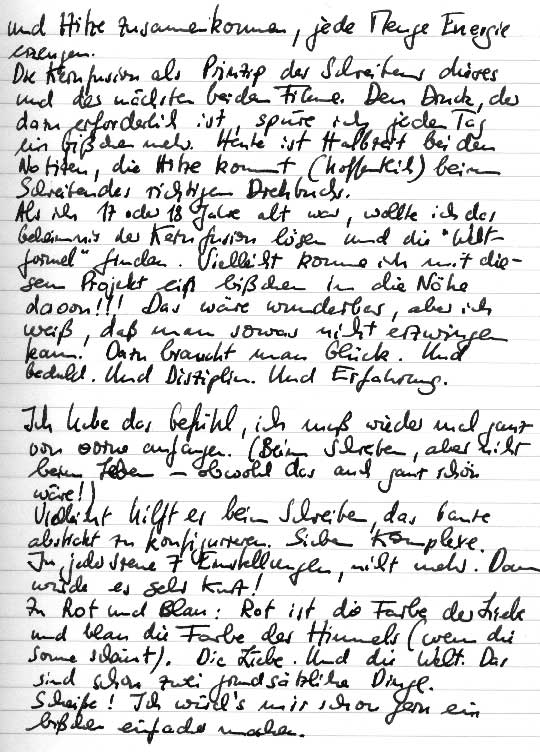 und Hitze zusammenkommen, jede Menge Energie
erzeugen.
Die Kernfusion als Prinzip des Schreibens dieses
und des nächsten beiden Filme. Den Druck, der
dazu erforderlich ist, spüre ich jeden Tag
ein bißchen mehr. Heute ist Halbzeit bei den
Notizen, die Hitze kommt (hoffentlich) beim
Schreiben des richtigen Drehbuchs.
Als ich 17 oder 18 Jahre alt war, wollte ich das
Geheimnis der Kernfusion lösen und die "Welt-
formel" finden. Vielleicht komme ich mit die-
sem Projekt ein bißchen in die Nähe
davon!!! Das wäre wunderbar, aber ich
weiß, daß man sowas nicht erzwingen
kann. Dazu braucht man Glück. Und
Geduld. Und Disziplin. Und Erfahrung.
Ich habe das Gefühl, ich muß wieder mal ganz
von vorne anfangen. (Beim Schreiben, aber nicht
beim Leben – obwohl das auch ganz schön
wäre!)
Vielleicht hilft es beim Schreiben, das Ganze
abstrakt zu konfigurieren. Sieben Komplexe.
In jeder Szene 7 Einstellungen, nicht mehr. Dann
würde es sehr kurz!
Zu Rot und Blau: Rot ist die Farbe der Liebe
und blau die Farbe des Himmels (wenn die
Sonne scheint). Die Liebe. Und die Welt. Das
sind schon zwei grundsätzliche Dinge.
Scheiße! Ich würd's mir schon gern ein
bißchen einfacher machen.